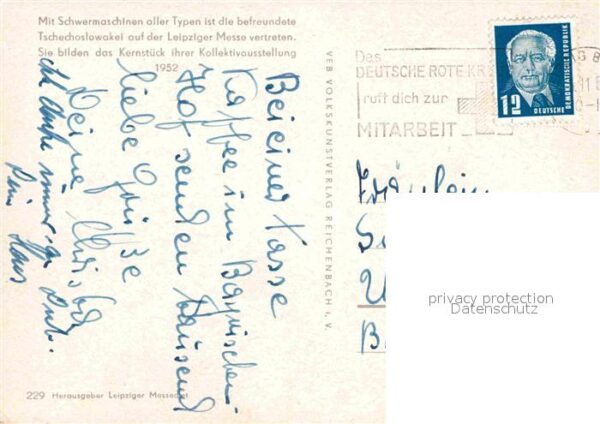 Mit Schwermaschinen aller Typen ist die befreundete
Tschechoslowakei auf der Leipziger Messe vertreten.
Sie bilden das Kernstück ihrer Kollektivausstellung
1952
Bei einer Tasse
Kaffee im Bayrischen
Hof senden tausend
liebe Grüße
Deine Christa
Dein Hans
229 Herausgeber Leipziger Messeamt
VEB VOLKSKUNSTVERLAG REICHENBACH i. V.
Das
DEUTSCHE ROTE KR
ruft dich zur
MITARBEIT
12
DEUTSCHE
DEMOKRATISCHE REPUBLIK
Fräulein
privacy protection
Datenschutz